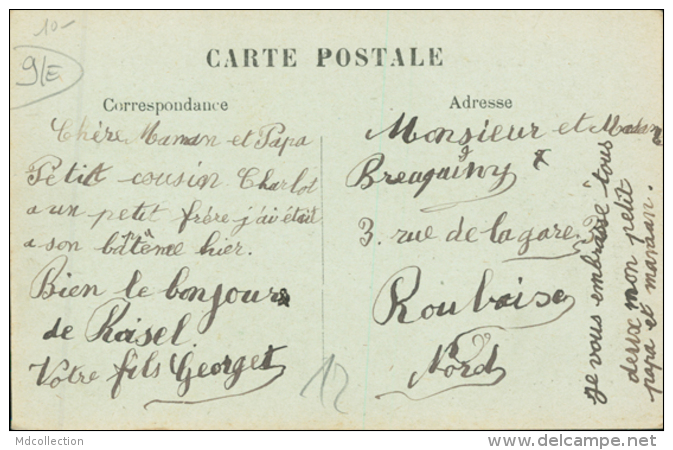 10-
9/E
CARTE POSTALE
Correspondance
Chère Maman et Papa
Petit cousin Charlot
a un petit frére j'ai était
a son batême hier.
Bien le bonjour
de Roisel
Votre fils Georget
12
Adresse
Monsieur et Madam
3. rue de la gare
Roubaix
Nord
je vous embrasse tous
deux mon petit
papa et maman.
Mdcollection
www.delcampe.net